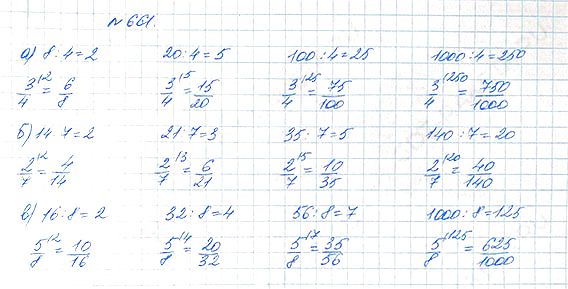 № 661.
а) 8 : 4 = 2 20 : 4 = 5 100 : 4 = 25 1000 : 4 = 250
3/4 ^(2 = 6/8 3/4 ^(5 = 15/20 3/4 ^(25 = 75/100 3/4 ^(250 = 750/1000
б) 14 7 = 2 21 : 7 = 3 35 : 7 = 5 140 : 7 = 20
2/7 ^(2 = 4/14 2/7 ^(3 = 6/21 2/7 ^(5 = 10/35 2/7 ^(20 = 40/140
в) 16 : 8 = 2 32 : 8 = 4 56 : 8 = 7 1000 : 8 = 125
5/8 ^(2 = 10/16 5/8 ^(4 = 20/32 5/8 ^(7 = 35/56 5/8 ^(125 = 625/1000